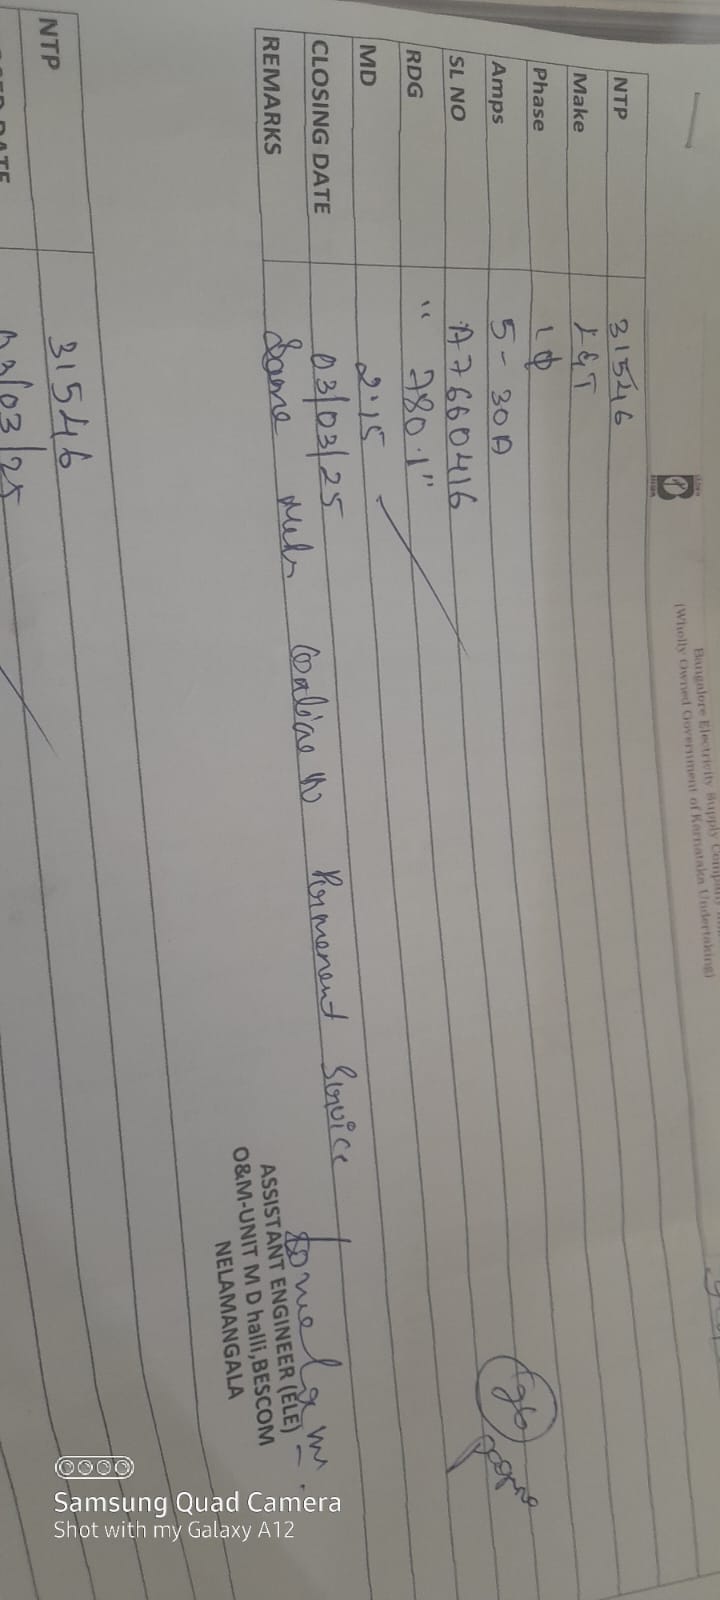 Bangalore Electricity Supply Company
(Wholly Owned Government of Karnataka Undertaking)
NTP 31546
Make L&T
Phase 1Φ
Amps 5-30A
SL NO A7660416
RDG "780.1"
MD 2.15
CLOSING DATE 03/03/25
REMARKS Same Service
ASSISTANT ENGINEER (ELE)
O&M-UNIT M D halli,BESCOM
NELAMANGALA
NTP 31546
DATE 03/03/25
Samsung Quad Camera
Shot with my Galaxy A12